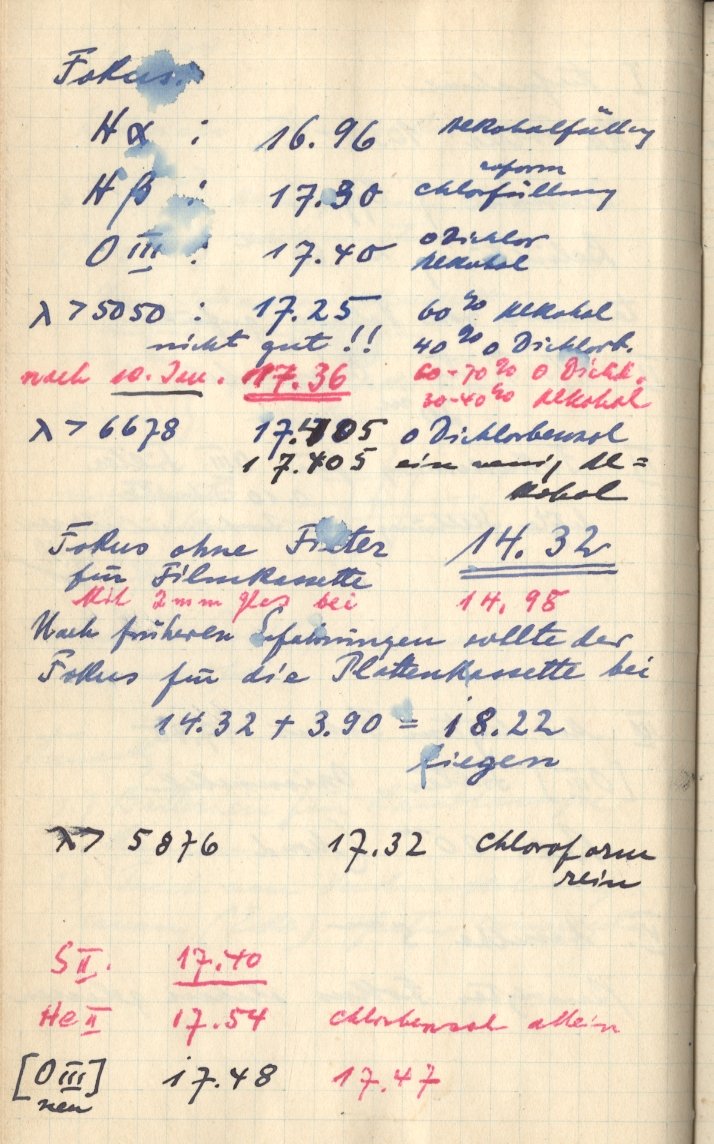 Fokus.
Hα : 16.96 Alkoholfüllung
Hβ : 17.30 Chloroformfüllung
O III : 17.40 o Dichlor Alkohol
λ > 5050 : 17.25 60 % Alkohol
nicht gut !! 40 % o Dichlorb.
nach 10. Jan. 17.36 60-70 % o Dichl.
30-40 % Alkohol
λ > 6678 17.405 o Dichlorbenzol
17.405 ein wenig Al=
kohol
Fokus ohne Filter 14.32
für Filmkassette
Mit 2 mm Glas bei 14.95
Nach früheren Erfahrungen sollte der
Fokus für die Plattenkassette bei
14.32 + 3.90 = 18.22
liegen
λ > 5876 17.32 Chloroform
rein
S II. 17.40
He II 17.54 Chlorbenzol allein
[O III] 17.48 17.47
neu